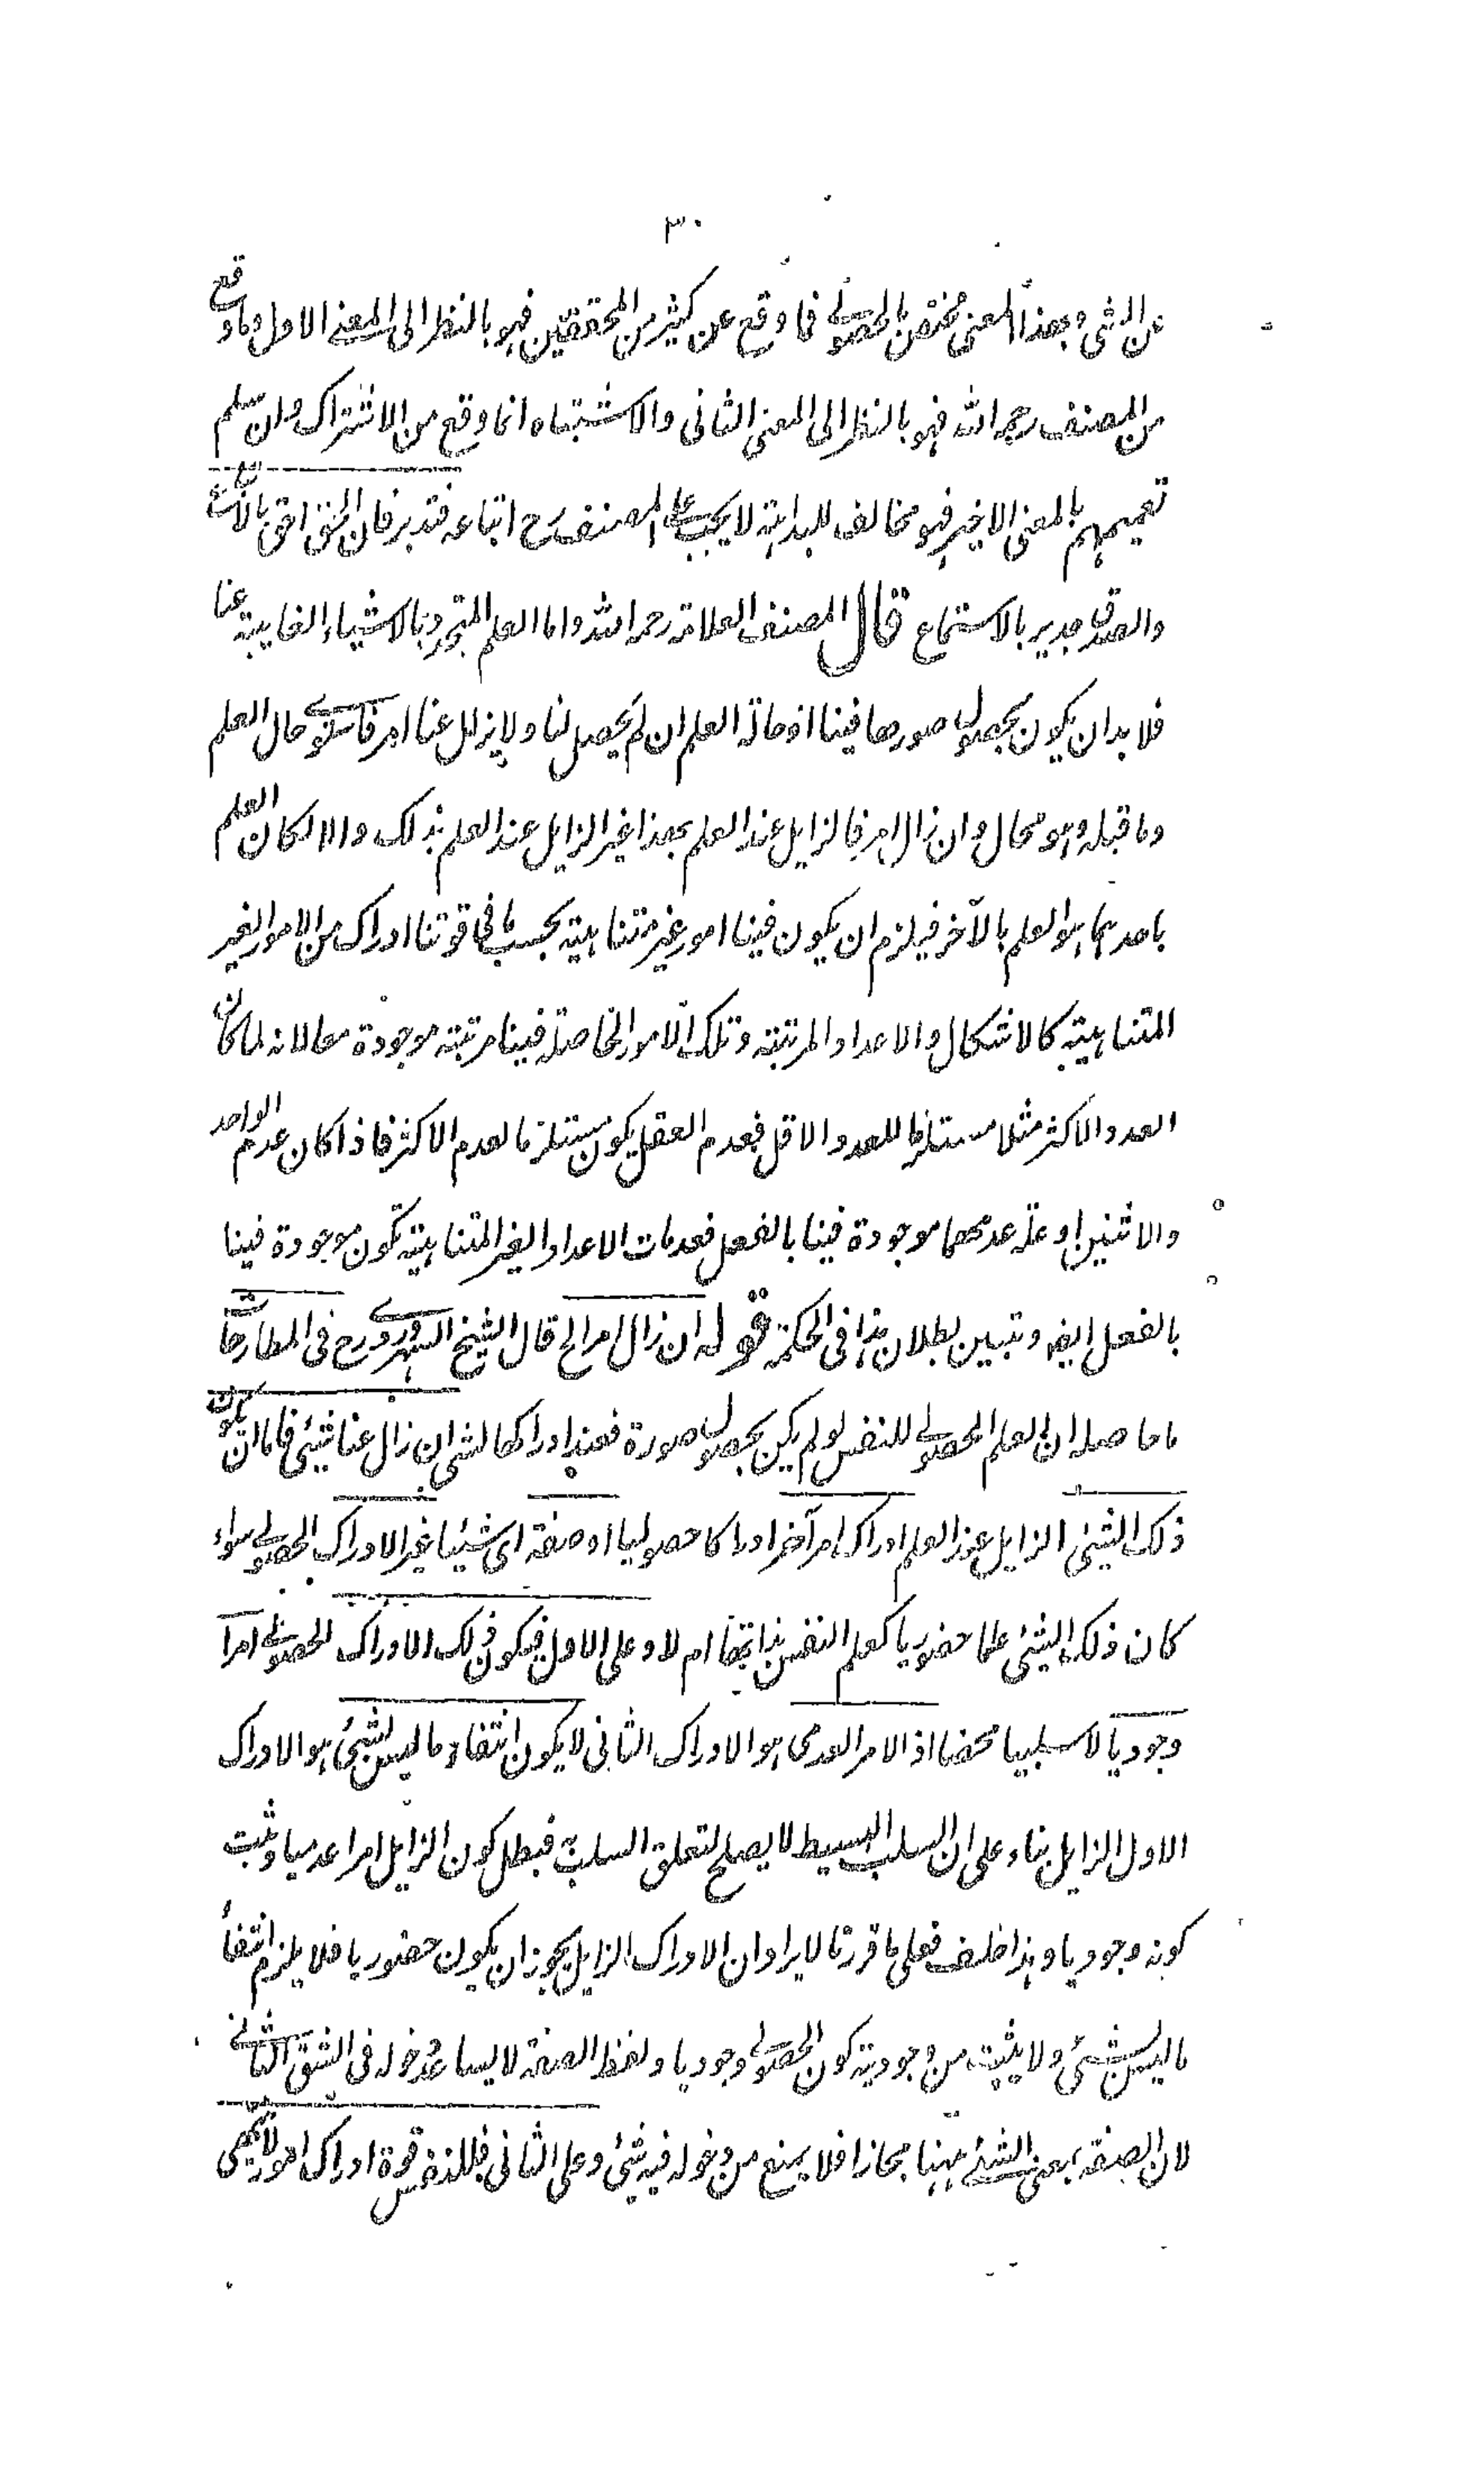 ٣٠
عن الشئ وبهذا المعنى مختص بالحصولى فما وقع عن كثير من المحققين فهو بالنظر الى المعنى الاول وما وقع
من المصنف رحمه الله فهو بالنظر الى المعنى الثانى والاشتباه انما وقع من الاشتراك وان سلم
تعميمهم بالمعنى الاخير فهو مخالف للبداهة لا يجب على المصنف رح اتباعه فتدبر فان الحق احق بالاتباع
والصدق جدير بالاستماع قال المصنف العلامة رحمه الله واما العلم المتجدد بالاشياء الغايبة عنا
فلا بد ان يكون بحصول صورها فينا اذ حالة العلم ان لم يحصل لنا ولا يزال عنا امر فاستوى حال العلم
وما قبله وهو محال وان زال امر فالزايل عند العلم بهذا غير الزايل عند العلم بذلك والا لكان العلم
باحدهما هو العلم بالآخر فيلزم ان يكون فينا امور غير متناهية بحسب ما فى قوتنا ادراك من الامور الغير
المتناهية كالاشكال والاعداد المرتبة وتلك الامور الحاصلة فينا مرتبة موجودة معا لانه لما كان
العدد الاكثر مثلا مستلزما للعدد الاقل فعدم العقل يكون مستلزما لعدم الاكثر فاذا كان عدم الواحد
والاثنين او علة عدمهما موجودة فينا بالفعل فعدمات الاعداد الغير المتناهية تكون موجودة فينا
بالفعل ايضه وتبيين بطلان هذا فى الحكمة قوله ان زال امر الخ قال الشيخ السهروردى رح فى المطارحات
ما حاصله ان العلم الحصولى للنفس لو لم يكن بحصول صورة فعند ادراكها لشئ ان زال عنا شيئ فاما ان يكون
ذلك الشيئ الزايل عند العلم ادراك امر آخر ادراكا حصوليا او صفة اى شيئا غير الادراك الحصولى سواء
كان ذلك الشيئ علما حضوريا كعلم النفس بذاتها ام لا وعلى الاول فيكون ذلك الادراك الحصولى امرا
وجوديا لا سلبيا محضا اذ الامر العدمى هو الادراك الثانى لا يكون انتفاء ما ليس بشيئ هو الادراك
الاول الزايل بناء على ان السلب البسيط لا يصلح لتعلق السلب به فبطل كون الزايل امرا عدميا وثبت
كونه وجوديا وهذا خلف فعلى ما قررنا لا يراد ان الادراك الزايل يجوز ان يكون حضوريا فلا يلزم انتفاء
ما ليس بشيئ ولا يثبت من وجوديته كون الحصولى وجوديا ولفظ الصفة لا يساعد دخوله فى الشق الثانى
لان الصفة بمعنى الشيئ ههنا مجازا فلا يمنع من دخوله فيه شيئ وعلى الثانى فللنفس قوة ادراك امور لا تحصى